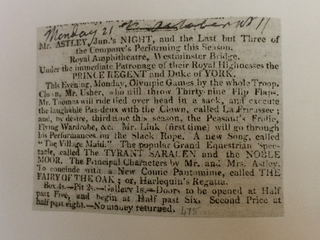 Monday 21st October 1811
Mr. ASTLEY, Jun.'s NIGHT, and the Last but Three of
the Company's Performing this Season.
Royal Amphitheatre, Westminster Bridge.
Under the immediate Patronage of their Royal Highnesses the
PRINCE REGENT and Duke of YORK.
This Evening, Monday, Olympic Games by the whole Troop.
Clown, Mr. Usher, who will throw Thirty-nine Flip Flaps.
Mr. Thomas will ride tied over head in a sack, and execute
the laughable Pas-deux with the Clown, called La Fricassee;
and, by desire, third time this season, the Peasant's Frolic,
Flying Wardrobe, &c. Mr. Link (first time) will go through
his Performances on the Slack Rope. A new Song, called
"The Village Maid." The popular Grand Equestrian Spec-
tacle, called The TYRANT SARACEN and the NOBLE
MOOR. The Principal Characters by Mr. and Mrs. Astley.
To conclude with a New Comic Pantomime, called THE
FAIRY OF THE OAK; or, Harlequin's Regatta.
Box 4s.—Pit 2s.—Gallery 1s.—Doors to be opened at Half
past Five, and begin at Half past Six. Second Price at
half past eight.—No money returned.